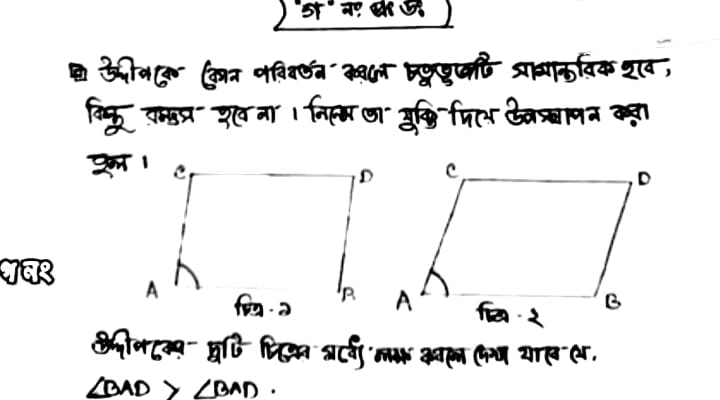 "গ" নং প্রঃ উঃ
উদ্দীপকে কোন পরিবর্তন করলে চতুভুজটি সামান্তরিক হবে,
কিন্তু রম্বস হবে না। নিম্নে তা যুক্তি দিয়ে উপস্থাপন করা
হল।
C D
C D
A B
চিত্র - ১
A B
চিত্র - ২
প্র নং
উদ্দীপকের দুটি চিত্রের মধ্যে লক্ষ করলে দেখা যাবে যে,
∠BAD > ∠BAD.